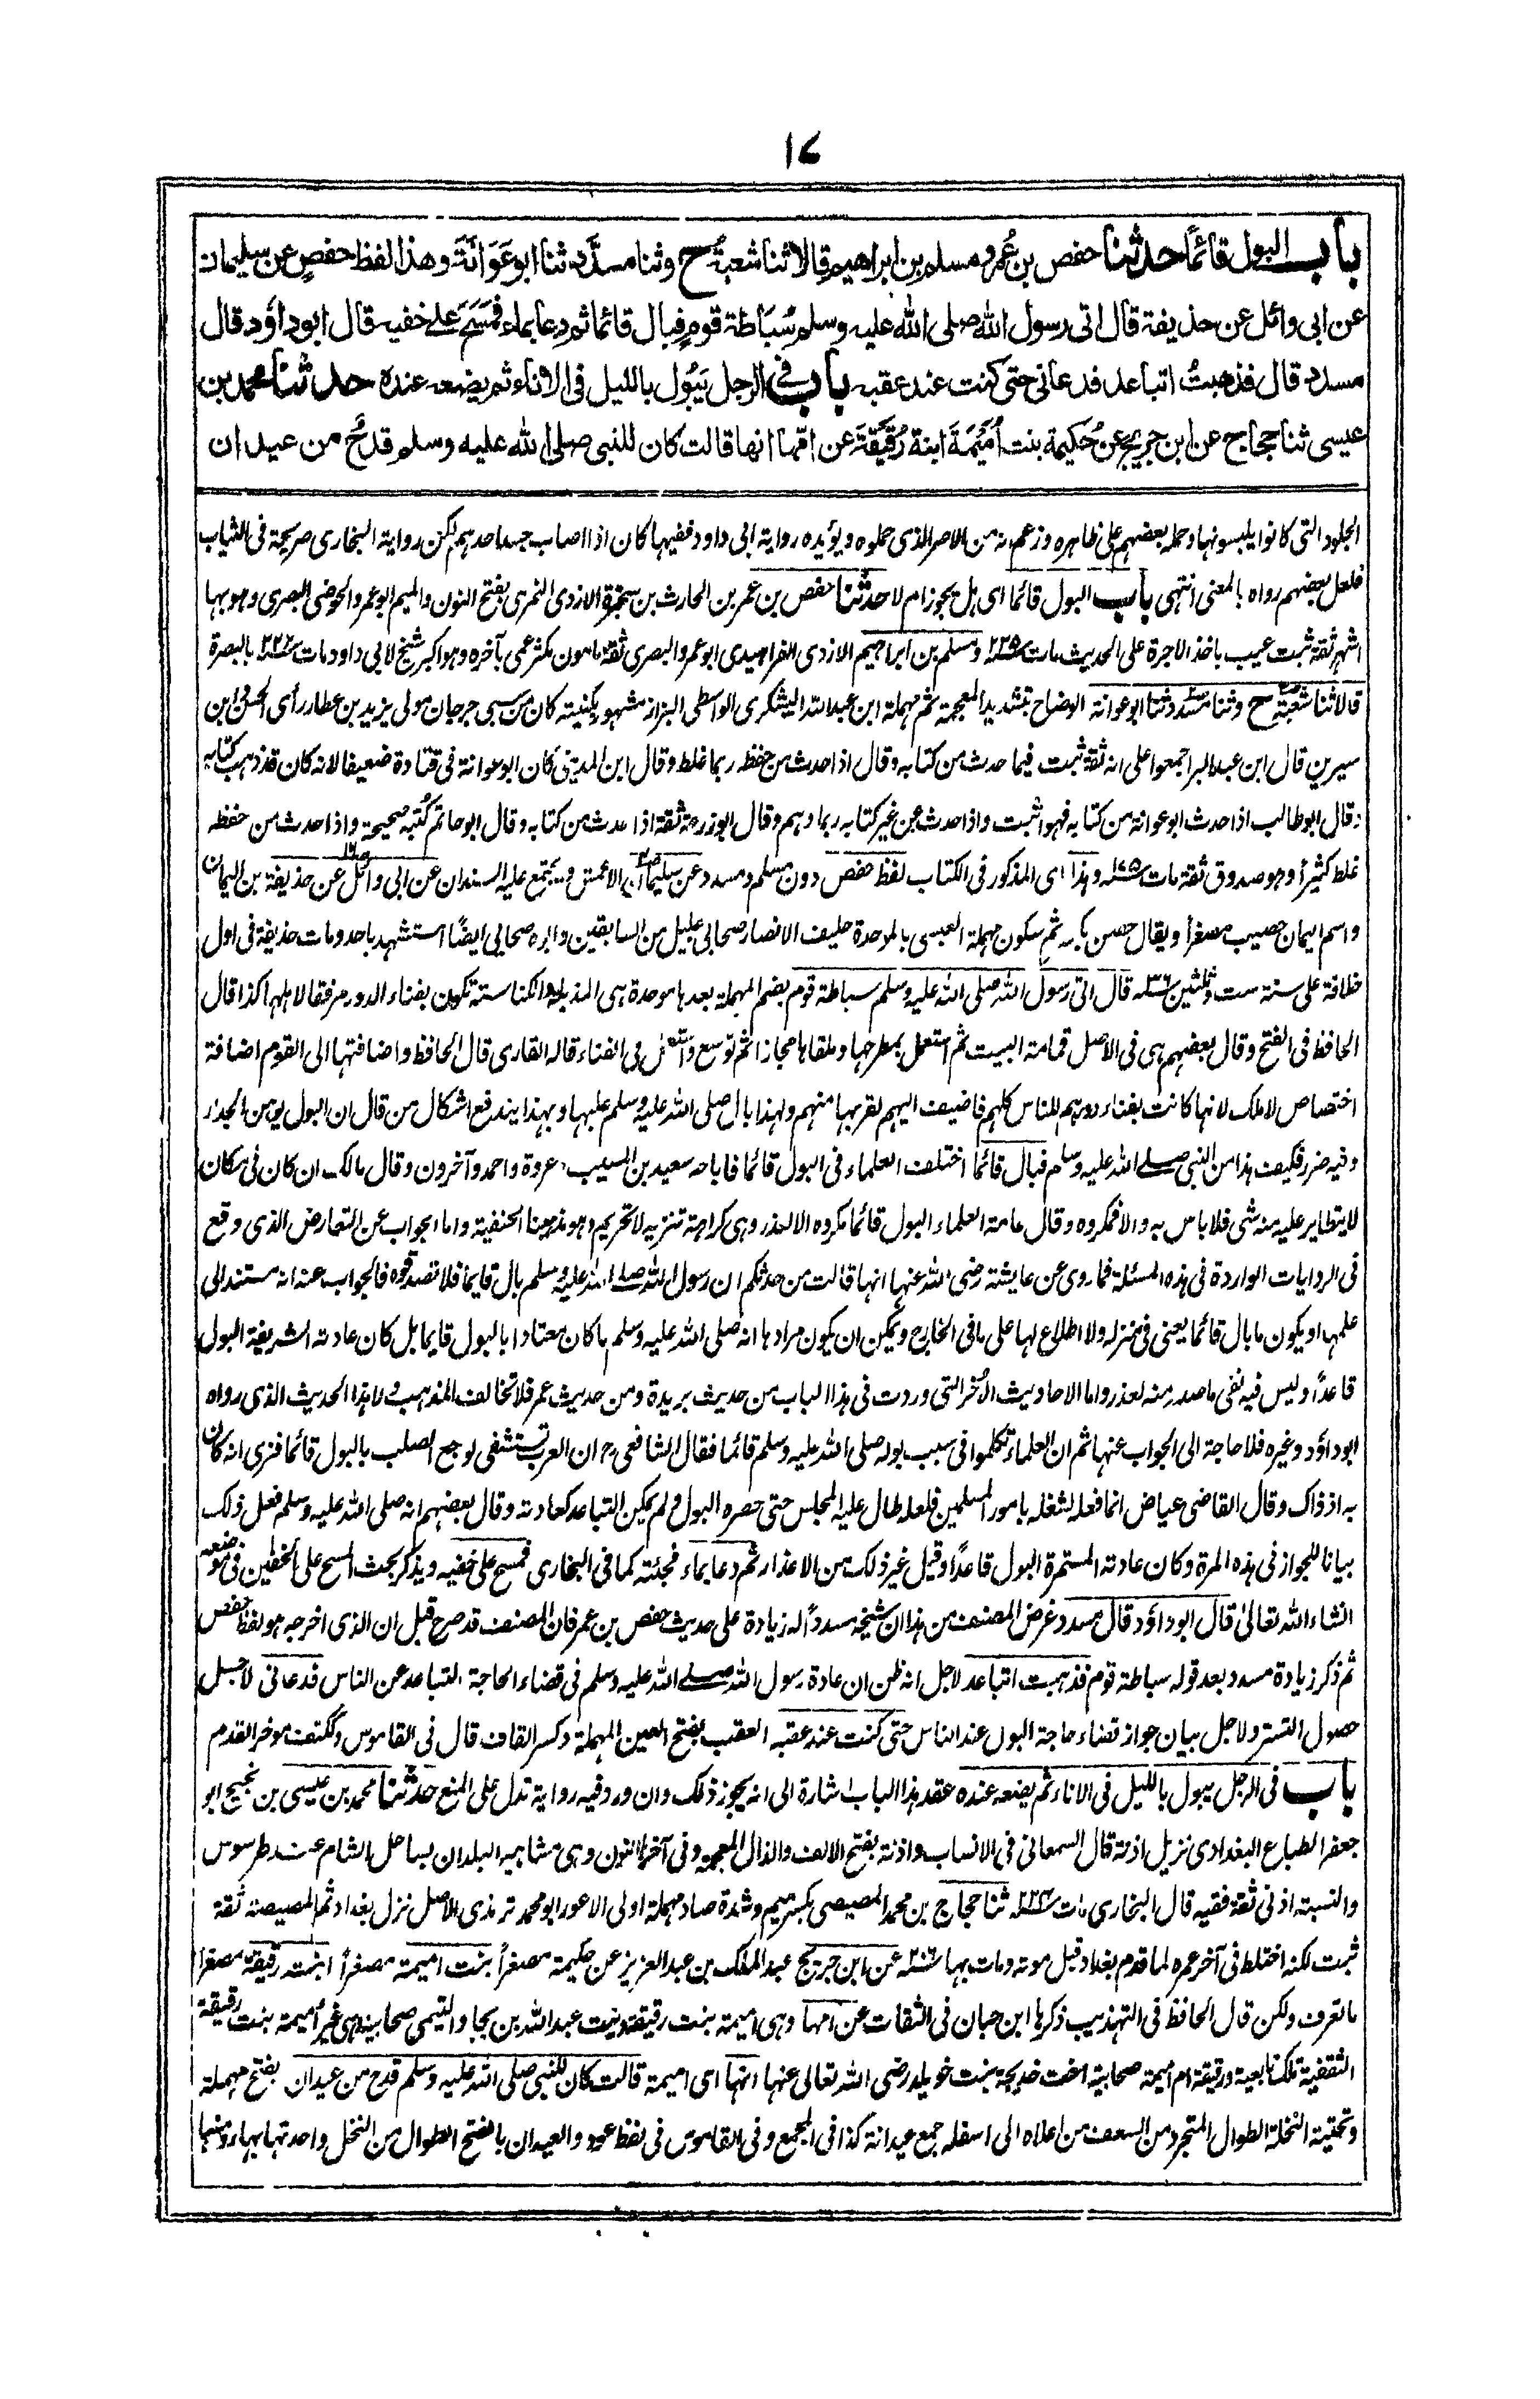 ١٧
باب البول قائمًا حدثنا حفص بن عُمر و مسلم بن ابراهيم قالا ثنا شعبة ح وثنا مسدَّد ثنا ابو عَوَانَةَ وهذا لفظ حفصٍ عن سليمان
عن ابى وائل عن حذيفة قال اتى رسول الله صلى الله عليه وسلم سُبَاطة قومٍ فبال قائما ثم دعا بماء فمَسَحَ على خفيه قال ابو داؤد قال
مسدد قال فذهبتُ اتباعد فدعانى حتى كنت عند عقبه باب فى الرجل يَبُول بالليل فى الاناء ثم يضعه عنده حدثنا محمد بن
عيسى ثنا حجاج عن ابن جريج عن حُكيمة بنت اُمَيْمَةَ ابنة رُقَيْقَةَ عن امّها انها قالت كان للنبى صلى الله عليه وسلم قدحٌ من عيدان
الجلود التى كانوا يلبسونها وحمله بعضهم على ظاهره وزعم انه من الاصر الذى حملوه ويؤيده رواية ابى داود ففيها كان اذا اصاب جسد احدهم لكن رواية البخارى صريحة فى الثياب
فلعل بعضهم رواه بالمعنى انتهى باب البول قائما اى هل يجوز ام لا حدثنا حفص بن عمر بن الحارث بن سخبرة الازدى النمرى بفتح النون والميم ابو عمر والحوضى البصرى وهو بها
اشهر ثقة ثبت عيب باخذ الاجرة على الحديث مات ٢٢٥ ومسلم بن ابراهيم الازدى الفراهيدى ابو عمرو البصرى ثقة مامون مكثر عمى بآخره وهو اكبر شيخ لابى داود مات ٢٢٢ بالبصرة
قالا ثنا شعبة ح وثنا مسدد ثنا ابو عوانة الوضاح بتشديد المعجمة ثم مهملة ابن عبدالله اليشكرى الواسطى البزاز مشهور بكنيته كان من سبى جرجان مولى يزيد بن عطار رأى الحسن وابن
سيرين قال ابن عبدالبر اجمعوا على انه ثقة ثبت فيما حدث من كتابه وقال اذا حدث من حفظه ربما غلط وقال ابن المدينى كان ابو عوانة فى قتادة ضعيفا لانه كان قد ذهب كتابه
وقال ابو طالب اذا حدث ابو عوانة من كتابه فهو اثبت واذا حدث عن غير كتابه ربما وهم وقال ابو زرعة ثقة اذا حدث من كتابه وقال ابو حاتم كُتبه صحيحة واذا حدث من حفظه
غلط كثيرًا وهو صدوق ثقة مات ١٧٥ وهذا اى المذكور فى الكتاب لفظ حفص دون مسلم ومسدد عن سليمان الاعمش ويجتمع عليه السندان عن ابى وائل عن حذيفة بن اليمان
واسم اليمان حسيب مصغرا ويقال حسن بكسر ثم سكون مهملة العبسى بالموحدة حليف الانصار صحابى جليل من السابقين وابوه صحابى ايضًا استشهد باحد ومات حذيفة فى اول
خلافة على سنة ست وثلثين ٣٦ قال اتى رسول الله صلى الله عليه وسلم سباطة قوم بضم المهملة بعدها موحدة هى المذبلة والكناسة تكون بفناء الدور مرفقا لاهلها كذا قال
الحافظ فى الفتح وقال بعضهم هى فى الاصل قمامة البيت ثم استعمل بمطرحها وملقاها مجازا ثم توسع و فى الفناء قاله القارى قال الحافظ واضافتها الى القوم اضافة
اختصاص لا ملك لانها كانت بفناء دورهم للناس كلهم فاضيفت اليهم لقربها منهم ولهذا بال صلى الله عليه وسلم عليها وبهذا يندفع اشكال من قال ان البول يوهن الجدار
وفيه ضرر فكيف هذا من النبى صلى الله عليه وسلم فبال قائمًا اختلف العلماء فى البول قائما فاباحه سعيد بن المسيب وعروة واحمد وآخرون وقال مالك ان كان فى مكان
لا يتطاير عليه منه شى فلا باس به والا فمكروه وقال عامة العلماء البول قائما مكروه الا لعذر وهى كراهة تنزيه لا تحريم وهو مذهبنا الحنفية واما الجواب عن التعارض الذى وقع
فى الروايات الواردة فى هذه المسئلة فما روى عن عايشة رضى الله عنها انها قالت من حدثكم ان رسول الله صلى الله عليه وسلم بال قايما فلا تصدقوه فالجواب عنه انه مستند الى
علمها او يكون ما بال قائما يعنى فى منزله ولا اطلاع لها على ما فى الخارج ويمكن ان يكون مرادها انه صلى الله عليه وسلم ما كان معتادا بالبول قايما بل كان عادته الشريفة البول
قاعدًا وليس فيه نفى ما صدر منه لعذر واما الاحاديث الأخر التى وردت فى هذا الباب من حديث بريدة ومن حديث عمر فلا تخالف المذهب ولا هذا الحديث الذى رواه
ابو داؤد وغيره فلا حاجة الى الجواب عنها ثم ان العلماء تكلموا فى سبب بوله صلى الله عليه وسلم قائما فقال الشافعى رح ان العرب تستشفى لوجع الصلب بالبول قائما فنرى انه كان
به اذ ذاك وقال القاضى عياض انما فعله لشغله بامور المسلمين فلعله طال عليه المجلس حتى حصره البول ولم يمكن التباعد كعادته وقال بعضهم انه صلى الله عليه وسلم فعل ذلك
بيانا للجواز فى هذه المرة وكان عادته المستمرة البول قاعدًا وقيل غير ذلك من الاعذار ثم دعا بماء فجئته كما فى البخارى فمسح على خفيه ويذكر بحث المسح على الخفين فى موضعه
انشاء الله تعالىٰ قال ابو داؤد قال مسدد غرض المصنف من هذا ان شيخه مسددًا له زيادة على حديث حفص بن عمر فان المصنف قد صرح قبل ان الذى اخرجه هو لفظ حفص
ثم ذكر زيادة مسدد بعد قوله سباطة قوم فذهبت اتباعد لاجل انه ظن ان عادة رسول الله صلى الله عليه وسلم فى قضاء الحاجة التباعد عن الناس فدعانى لاجل
حصول التستر ولاجل بيان جواز قضاء حاجة البول عند الناس حتى كنت عند عقبه العقب بفتح العين المهملة وكسر القاف قال فى القاموس وككتف موخر القدم
باب فى الرجل يبول بالليل فى الاناء ثم يضعه عنده عقد هذا الباب اشارة الى انه يجوز ذلك وان ورد فيه رواية تدل على المنع حدثنا محمد بن عيسى بن نجيح ابو
جعفر الطباع البغدادى نزيل اذنة قال السمعانى فى الانساب واذنة بفتح الالف والذال المعجمة وفى آخرها النون وهى مشاهير البلدان بساحل الشام عند طرسوس
والنسبته اذنى ثقة فقيه قال البخارى مات ٢٢٤ ثنا حجاج بن محمد المصيصى بكسر ميم وشدة صاد مهملة اولى الاعور ابو محمد ترمذى الاصل نزل بغداد ثم المصيصة ثقة
ثبت لكنه اختلط فى آخر عمره لما قدم بغداد قبل موته ومات بها ٢٠٦ عن ابن جريج عبدالملك بن عبدالعزيز عن حكيمة مصغرًا بنت اميمة مصغرًا ابنت رقيقة مصغرا
ما تعرف ولكن قال الحافظ فى التهذيب ذكرها ابن حبان فى الثقات عن امها وهى اميمة بنت رقيقة بنت عبدالله بن بجاد التيمى صحابية وهى غير اميمة بنت رقيقة
الثقفية تلك تابعية ورقيقة ام اميمة صحابية اخت خديجة بنت خويلد رضى الله تعالى عنها انها اى اميمة قالت كان للنبى صلى الله عليه وسلم قدح من عيدان بفتح مهملة
وتحتية النخلة الطوال المتجرد من السعف من اعلاه الى اسفله جمع عيدانة كذا فى المجمع وفى القاموس فى لفظ عود والعيدان بالفتح الطوال من النخل واحدتها بهاء ومنها